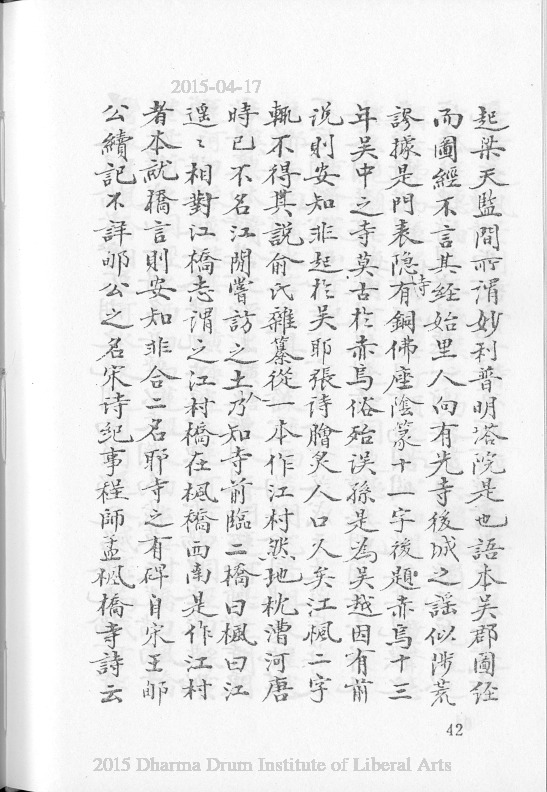 2015-04-17
起梁天監間所謂妙利普明塔院是也語本吳郡圖經
而圖經不言其經始里人向有先寺後城之謡似涉荒
謬據是門表隐有銅佛座陰篆十一字後題赤烏十三
時
年吴中之寺莫古於赤烏俗殆误孫是為吴越因有前
说則安知非起於吴耶張诗膾炙人口久矣江楓二字
輒不得其説俞氏雜纂從一本作江村然地枕漕河唐
時已不名江閒嘗訪之土人乃知寺前臨二橋曰楓曰江
遥〻相對江橋志謂之江村橋在楓橋西南是作江村
者本就橋言則安知非合二名耶寺之有碑自宋王郇
公續記不詳郇公之名宋诗纪事程師孟楓橋寺詩云
42
2015 Dharma Drum Institute of Liberal Arts